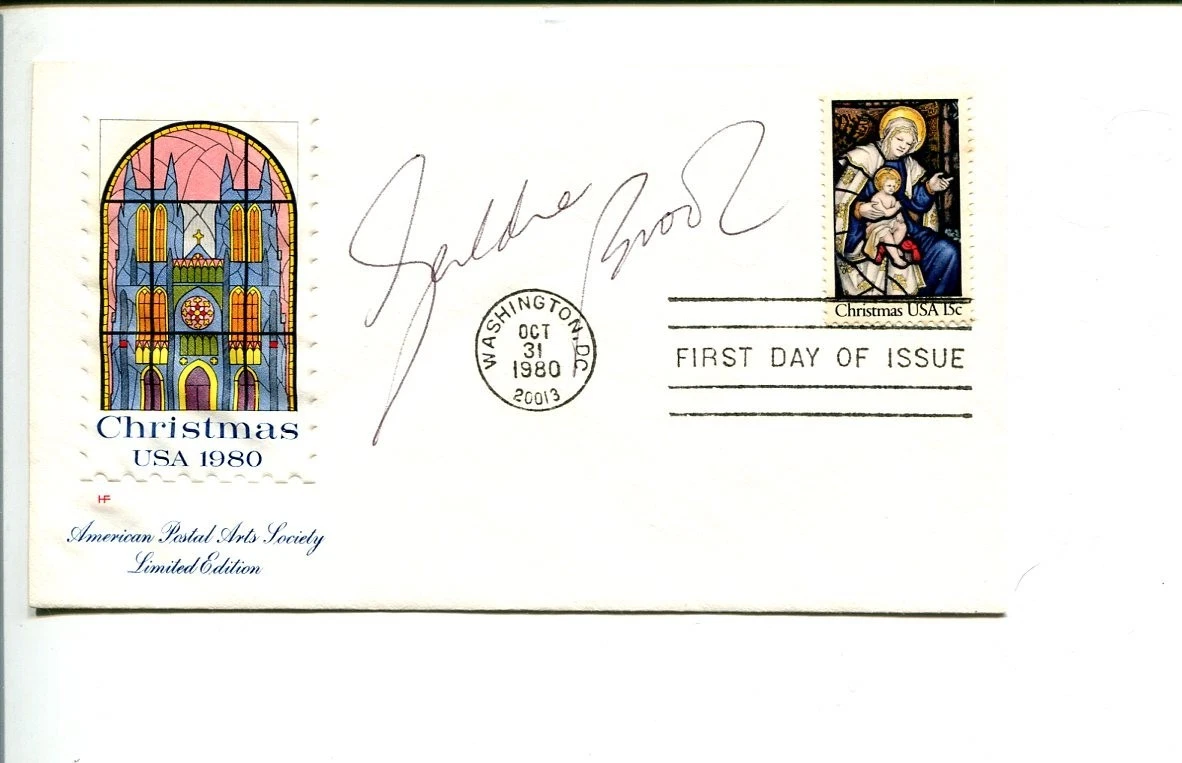 Christmas
USA 1980
HF
American Postal Arts Society
Limited Edition
WASHINGTON, DC
OCT
31
1980
20013
Christmas USA 15c
FIRST DAY OF ISSUE